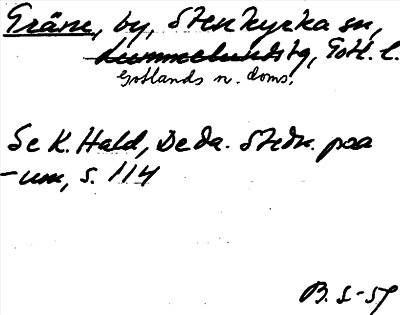 Träne, by, Stenkyrka sn,
Lummelunds tg, Gotl. l.
Gotlands n. doms.
Se K. Hald, De da. Stedn. paa
-um, s. 114
B. S-59